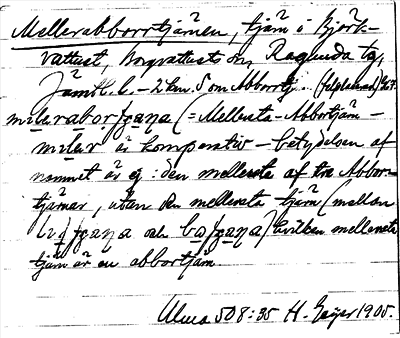 Mellerabborrtjärnen, tjärn i Björk-
vattnet, Borgvattnets sn, Ragunda tg,
Jämtl. l. – 2 km. S om Abborrtj.
(= Mellersta-Abbortjärn –
är komparativ – betydelsen af
namnet är ej: den mellersta af tre Abbor-
tjärnar, utan den mellersta tjärn (mellan
och) hvilken mellersta
tjärn är en abbortjärn
Ulma 508:35 H. Geijer 1905.